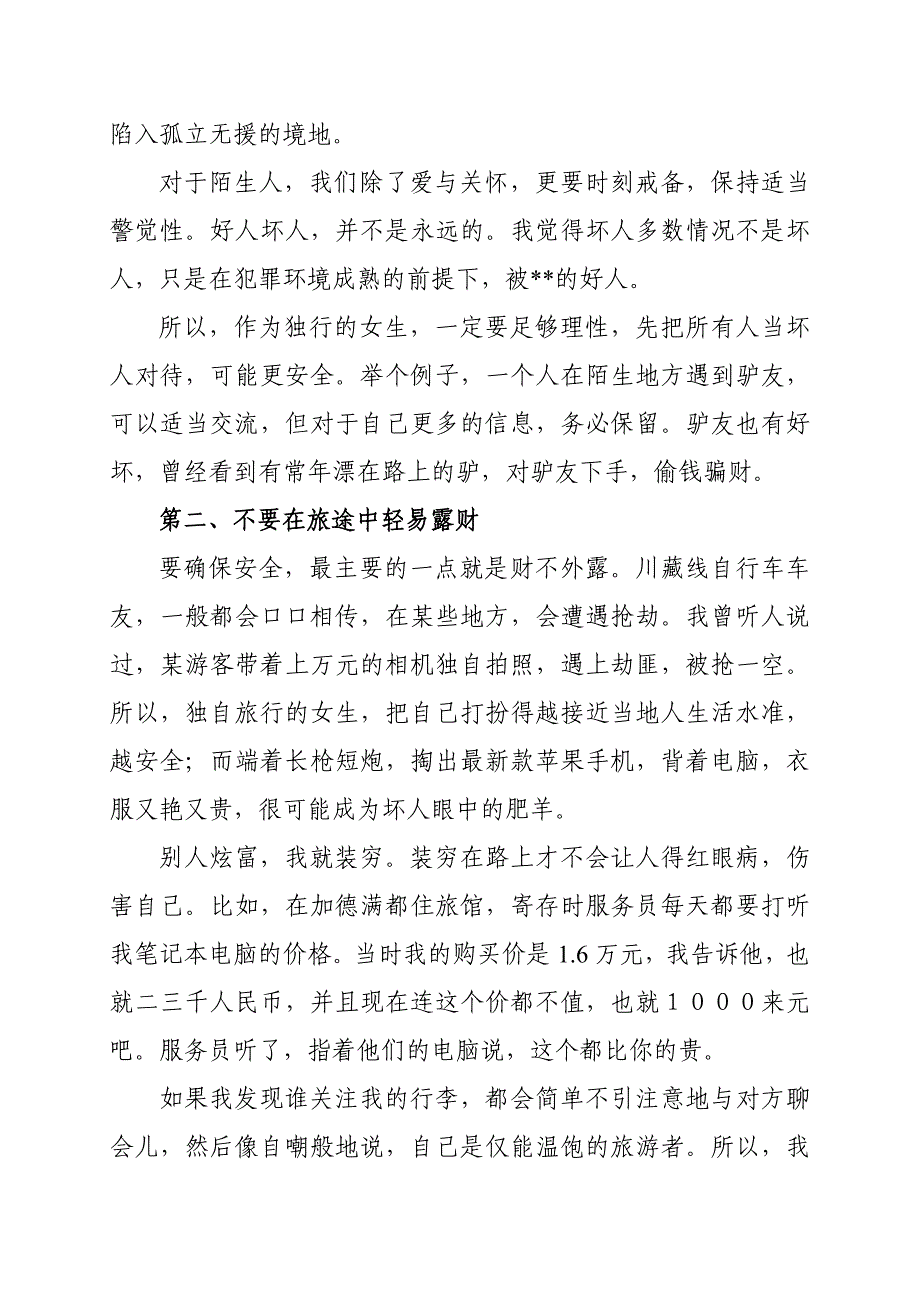 陷入孤立无援的境地。
对于陌生人，我们除了爱与关怀，更要时刻戒备，保持适当
警觉性。好人坏人，并不是永远的。我觉得坏人多数情况不是坏
人，只是在犯罪环境成熟的前提下，被**的好人。
所以，作为独行的女生，一定要足够理性，先把所有人当坏
人对待，可能更安全。举个例子，一个人在陌生地方遇到驴友，
可以适当交流，但对于自己更多的信息，务必保留。驴友也有好
坏，曾经看到有常年漂在路上的驴，对驴友下手，偷钱骗财。
第二、不要在旅途中轻易露财
要确保安全，最主要的一点就是财不外露。川藏线自行车车
友，一般都会口口相传，在某些地方，会遭遇抢劫。我曾听人说
过，某游客带着上万元的相机独自拍照，遇上劫匪，被抢一空。
所以，独自旅行的女生，把自己打扮得越接近当地人生活水准，
越安全；而端着长枪短炮，掏出最新款苹果手机，背着电脑，衣
服又艳又贵，很可能成为坏人眼中的肥羊。
别人炫富，我就装穷。装穷在路上才不会让人得红眼病，伤
害自己。比如，在加德满都住旅馆，寄存时服务员每天都要打听
我笔记本电脑的价格。当时我的购买价是 1.6 万元，我告诉他，也
就二三千人民币，并且现在连这个价都不值，也就１０００来元
吧。服务员听了，指着他们的电脑说，这个都比你的贵。
如果我发现谁关注我的行李，都会简单不引注意地与对方聊
会儿，然后像自嘲般地说，自己是仅能温饱的旅游者。所以，我